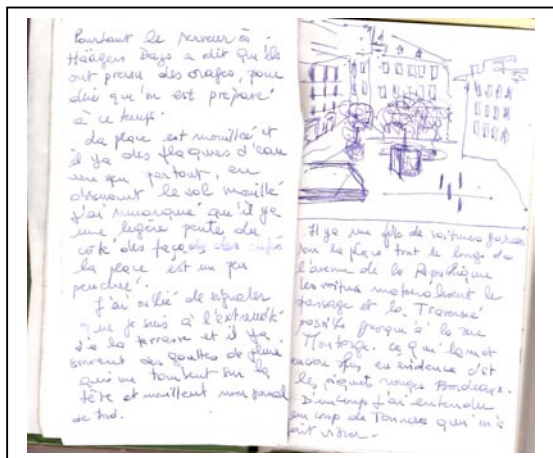 Pourtant le serveur à
Häagen Dazs a dit qu'ils
ont prévu des orages, pour
dire qu'on est préparé
à ce temps.
La place est mouillée et
il ya des flaques d'eau
un peu partout, en
observant le sol mouillé
j'ai remarqué qu'il ya
une légère pente du
côté des façades des cafés
la place est un peu
penchée.
J'ai oublié de signaler
que je suis à l'extrémité
de la terrasse et il ya
souvent des gouttes de pluie
qui me tombent sur la
tête et mouillent mon
de bord.
Il ya une file de voitures garées
sur la place tout le long de
l'avenue de la République
les voitures matérialisent le
passage et la Traversée
possible jusqu'à la rue
Montorge. ce qui la met
encore plus en évidence c'est
les piquets rouges Bordeaux.
D'un coup j'ai entendu
un coup de Tonnerre qui m'a
fait vibrer.